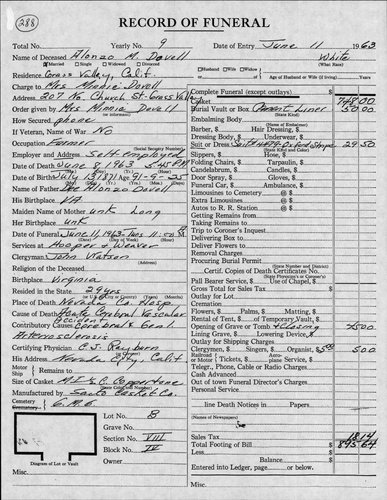 288
RECORD OF FUNERAL
Total No. Yearly No. 9 Date of Entry June 11 1963
Name of Deceased Alonzo M. Dovell White
Married Single Widowed Divorced (What Race)
Residence Grass Valley, Calif. Husband Wife Widow
Age of Husband or Wife (if living)
Charge to Mrs Minnie Dovell
Address 207 No. Church St. Grass Valley
Order given by Mrs Minnie Dovell
How Secured phone
If Veteran, Name of War No
Occupation Farmer
(Social Security Number)
Employer and Address Self employed
Date of Death June 8, 1963 5:45 P.M.
Date of Birth July 13, 1871 Age 91-9-25
Name of Father Alonzo Dovell
His Birthplace VA
Maiden Name of Mother unk Long
Her Birthplace unk
Date of Funeral June 11, 1963 Tues 11:00
Services at Hooper & Weaver
(Address)
Clergyman John Watson
Religion of the Deceased
Birthplace Virginia
Resided in the State 29 yrs
Place of Death Nevada Co. Hosp
Cause of Death Acute Cerebral Vascular
Accident
Contributory Causes Cerebral & Genl.
Arteriosclerosis
Certifying Physician
His Address Nevada City, Calif
Motor Ship Remains to
Size of Casket
Manufactured by Casket Co.
Cemetery
Lot No. 8
Grave No.
Section No. VIII
Block No. IV
Owner
Diagram of Lot or Vault
Complete Funeral (except outlays)
Casket 748.00
Burial Vault or Box Liner 50.00
(State Kind)
Embalming Body
Barber, Hair Dressing
Dressing Body, Underwear
Suit or Dress 29.50
(State Kind and Color)
Slippers, Hose
Folding Chairs, Tarpaulin
Candelabrum, Candles
Door Spray, Gloves
Funeral Car, Ambulance
Limousines to Cemetery @
Extra Limousines @
Autos to R. R. Station @
Getting Remains from
Taking Remains to
Trip to Coroner's Inquest
Delivering Outside Box
Deliver Flowers to
Removal Charges
Procuring Burial Permit
(State Number and District)
Certif. Copies of Death Certificates No.
Pall Bearer Service, Use of Chapel
Gross Total for Sales Tax
Outlay for Lot
Cremation
Flowers, Palms, Matting
Rental of Tent, of Temporary Vault
Opening of Grave or Tomb & Closing
Lining Grave, Lowering Device
Outlay for Shipping Charges
Clergymen, Singers, Organist, 5.00 5.00
Railroad or Motor Tickets, Aeroplane Service
Telegr., Phone, Cable or Radio Charges
Cash Advanced
Out of town Funeral Director's Charges
Personal Service
line Death Notices in Papers
(Names of Newspapers)
Sales Tax
Total Footing of Bill
Less
Balance
Entered into Ledger, page or below.